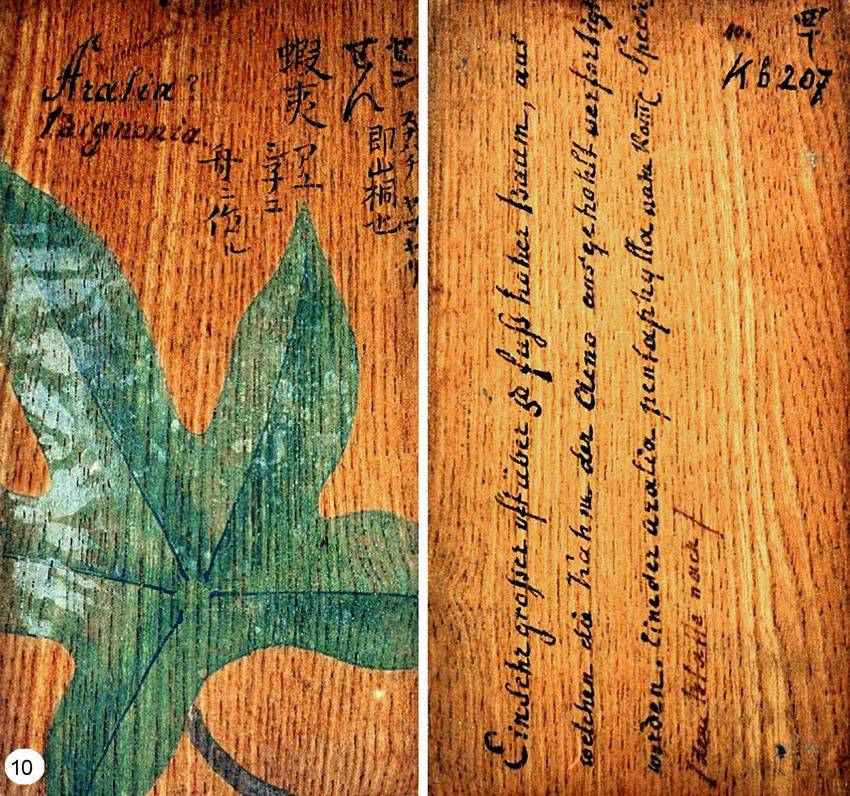 Aralia ?
Bignonia.
せん
即山桐也
蝦夷
舟ニ作ル
10.
Kb 207
Ein sehr großer oft über 50 fuß hoher baum, aus
welchen die Kähne der Aeno ausgehohlt verfertigt
werden. Eine der aralia pentaphylla nahe Speci
dem Blatte nach
10